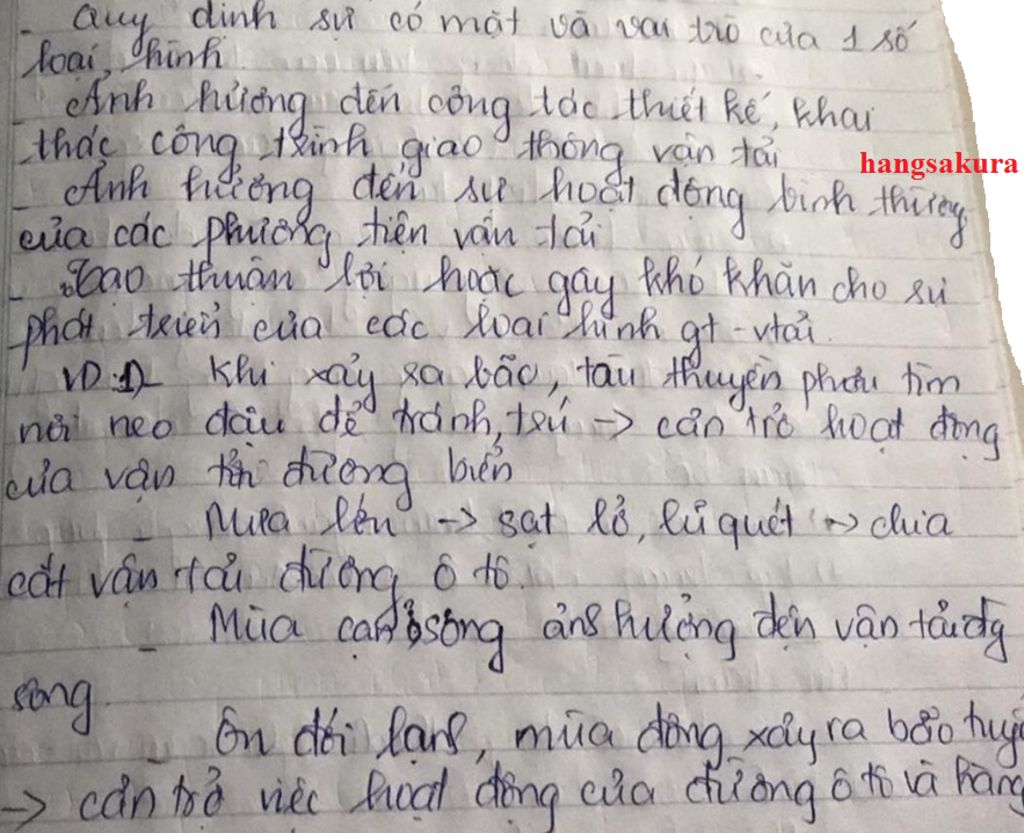 - Quy định sự có mặt và vai trò của 1 số
loại hình.
- Ảnh hưởng đến công tác thiết kế, khai
thác công trình giao thông vận tải
hangsakura
- Ảnh hưởng đến sự hoạt động bình thường
của các phương tiện vận tải
- Tạo thuận lợi hoặc gây khó khăn cho sự
phát triển của các loại hình gt - vtải.
VD: Khi xảy ra bão, tàu thuyền phải tìm
nơi neo đậu để tránh, trú -> cản trở hoạt động
của vận tải đường biển
- Mưa lớn -> sạt lở, lũ quét -> chia
cắt vận tải đường ô tô.
- Mùa cạn sông ảnh hưởng đến vận tải đg
sông
- Ôn đới lạnh, mùa đông xảy ra bão tuyế
-> cản trở việc hoạt động của đường ô tô và hàng